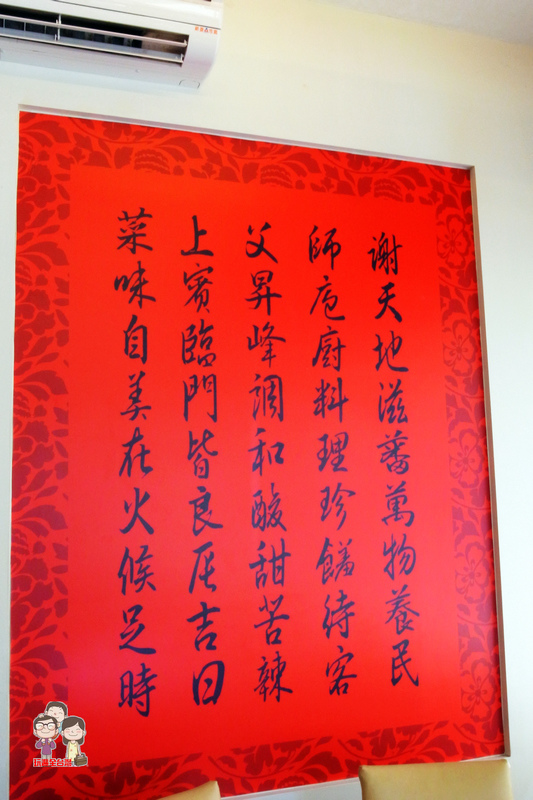 謝天地滋蕃萬物養民
師庖廚料理珍饈待客
父昇峰調和酸甜苦辣
上賓臨門皆良辰吉日
菜味自美在火候足時